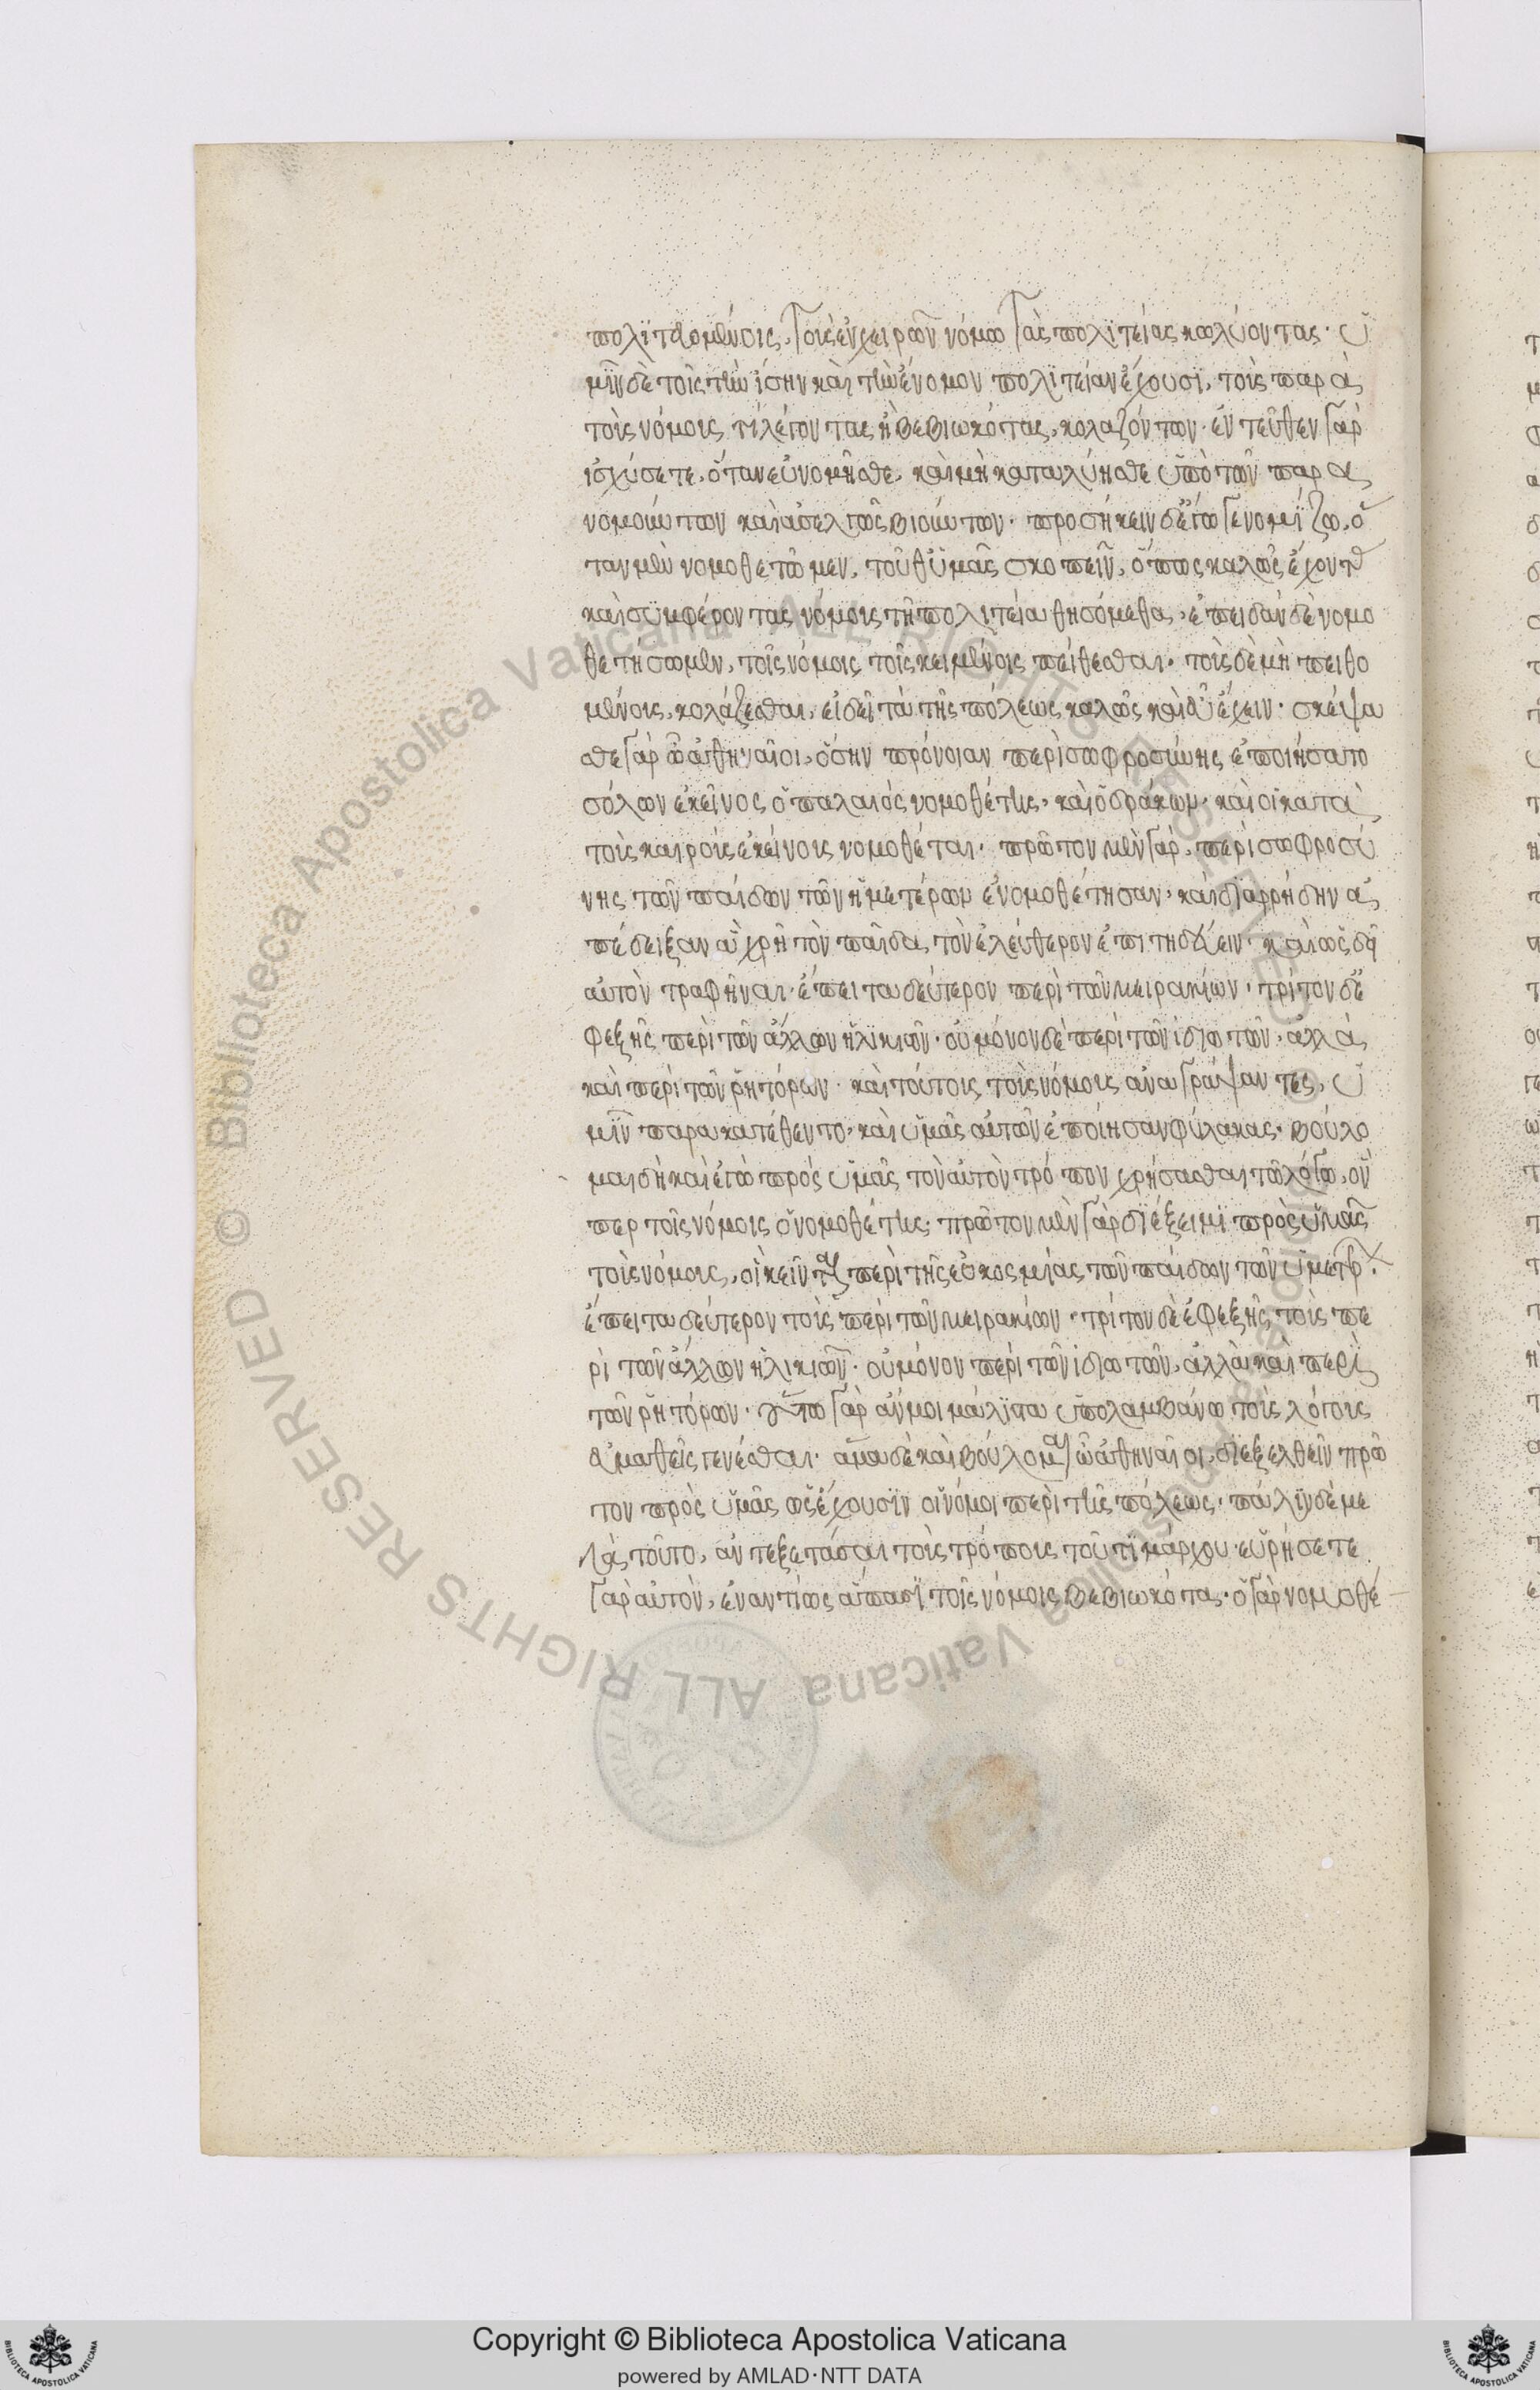 πολϊτευομένοις, τοὺς ἐν χειρῶν νόμω τὰς πολϊτείας κωλύοντας· ὑ
μῖν δὲ τοῖς τὴν ἴσην καὶ τὴν ἔνομον πολϊτείαν ἔχουσϊ, τοὺς παρὰ
τοὺς νόμους ἢ λέγοντας ἢ βεβιωκότας, κολαζόντων· ἐντεῦθεν γὰρ
ἰσχύσετε, ὅταν εὐνομῆσθε, καὶ μὴ καταλύησθε ὑπὸ τῶν παρα
νομούντων καὶ ἀσελγῶς βιούντων· προσήκειν δὲ ἔγωγε νομίζω, ὅ
ταν μὲν νομοθετῶμεν, τοῦθ' ὑμᾶς σκοπεῖν, ὅπως καλῶς ἔχοντ
καὶ συμφέροντας νόμους τῆ πολιτεία θησόμεθα, ἐπειδὰν δὲ νομο
θετήσωμεν, τοῖς νόμοις τοῖς κειμένοις πείθεσθαι· τοὺς δὲ μὴ πειθο
μένους, κολάζεσθαι, εἰ δεῖ τὰ τῆς πόλεως καλῶς καὶ εὖ ἔχειν· σκέψα
σθε γὰρ ὦ ἀθηναῖοι, ὅσην πρόνοιαν περὶ σωφροσύνης ἐποιήσατο
σόλων ἐκεῖνος ὁ παλαιὸς νομοθέτης, καὶ ὁ δράκων, καὶ οἱ κατὰ
τοὺς καιροὺς ἐκείνους νομοθέται· πρῶτον μὲν γὰρ, περὶ σωφροσύ
νης τῶν παίδων τῶν ἡμετέρων ἐνομοθέτησαν, καὶ διαρρήδην ἀ
πέδειξαν ἃ χρὴ τὸν παῖδα τὸν ἐλεύθερον ἐπιτηδεύειν· καὶ ὡς δεῖ
αὐτὸν τραφῆναι· ἔπειτα δεύτερον περὶ τῶν μειρακίων· τρίτον δὲ ἐ
φεξῆς περὶ τῶν ἄλλων ἡλικιῶν· οὐ μόνον δὲ περὶ τῶν ἰδιωτῶν, ἀλλὰ
καὶ περὶ τῶν ῥητόρων· καὶ τούτους τοὺς νόμους ἀναγράψαντες, ὑ
μῖν παρακατέθεντο, καὶ ὑμᾶς αὐτῶν ἐποίησαν φύλακας· βούλο
μαι δὴ καὶ ἐγὼ πρὸς ὑμᾶς τὸν αὐτὸν τρόπον χρήσασθαι τῶ λόγω, ὅν
περ τοῖς νόμοις ὁ νομοθέτης· πρῶτον μὲν γὰρ διέξειμϊ πρὸς ὑμᾶς
τοὺς νόμους, οἳ κεῖνται περὶ τῆς εὐκοσμίας τῶν παίδων τῶν ὑμετέρ·
ἔπειτα δεύτερον τοὺς περὶ τῶν μειρακίων· τρίτον δὲ ἐφεξῆς τοὺς πε
ρὶ τῶν ἄλλων ἡλικιῶν· οὐ μόνον περὶ τῶν ἰδιωτῶν, ἀλλὰ καὶ περὶ
τῶν ῥητόρων· οὕτω γὰρ ἄν μοι μάλϊστα ὑπολαμβάνω τοὺς λόγους
εὐμαθεῖς γενέσθαι· ἅμα δὲ καὶ βούλομαι ὦ ἀθηναῖοι, διεξελθεῖν πρῶ
τον πρὸς ὑμᾶς ὡς ἔχουσϊν οἱ νόμοι περὶ τῆς πόλεως· πάλϊν δὲ με
τὰ τοῦτο, ἀντεξετάσαι τοὺς τρόπους τοὺς τϊμάρχου· εὑρήσετε
γὰρ αὐτὸν, ἐναντίως ἅπασϊ τοῖς νόμοις βεβιωκότα· ὁ γὰρ νομοθέ
© Biblioteca Apostolica Vaticana ALL RIGHTS RESERVED
Copyright © Biblioteca Apostolica Vaticana
powered by AMLAD·NTT DATA